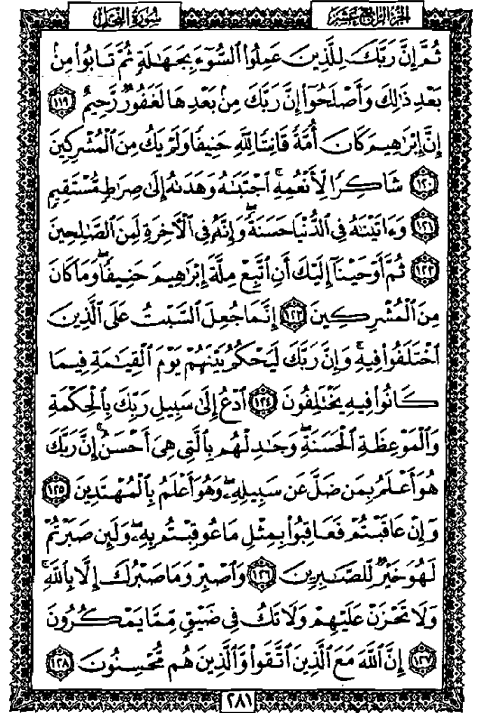 سُورَةُ النَّحْلِ
الجُزْءُ الرَّابِعَ عَشَرَ
ثُمَّ إِنَّ رَبَّكَ لِلَّذِينَ عَمِلُوا۟ ٱلسُّوٓءَ بِجَهَـٰلَةٍ ثُمَّ تَابُوا۟ مِنۢ
بَعْدِ ذَٰلِكَ وَأَصْلَحُوٓا۟ إِنَّ رَبَّكَ مِنۢ بَعْدِهَا لَغَفُورٌ رَّحِيمٌ ١١٩
إِنَّ إِبْرَٰهِيمَ كَانَ أُمَّةً قَانِتًا لِّلَّهِ حَنِيفًا وَلَمْ يَكُ مِنَ ٱلْمُشْرِكِينَ
١٢٠ شَاكِرًا لِّأَنْعُمِهِ ۚ ٱجْتَبَىٰهُ وَهَدَىٰهُ إِلَىٰ صِرَٰطٍ مُّسْتَقِيمٍ
١٢١ وَءَاتَيْنَـٰهُ فِى ٱلدُّنْيَا حَسَنَةً ۖ وَإِنَّهُۥ فِى ٱلْـَٔاخِرَةِ لَمِنَ ٱلصَّـٰلِحِينَ
١٢٢ ثُمَّ أَوْحَيْنَآ إِلَيْكَ أَنِ ٱتَّبِعْ مِلَّةَ إِبْرَٰهِيمَ حَنِيفًا ۖ وَمَا كَانَ
مِنَ ٱلْمُشْرِكِينَ ١٢٣ إِنَّمَا جُعِلَ ٱلسَّبْتُ عَلَى ٱلَّذِينَ
ٱخْتَلَفُوا۟ فِيهِ ۚ وَإِنَّ رَبَّكَ لَيَحْكُمُ بَيْنَهُمْ يَوْمَ ٱلْقِيَـٰمَةِ فِيمَا
كَانُوا۟ فِيهِ يَخْتَلِفُونَ ١٢٤ ٱدْعُ إِلَىٰ سَبِيلِ رَبِّكَ بِٱلْحِكْمَةِ
وَٱلْمَوْعِظَةِ ٱلْحَسَنَةِ ۖ وَجَـٰدِلْهُم بِٱلَّتِى هِىَ أَحْسَنُ ۚ إِنَّ رَبَّكَ
هُوَ أَعْلَمُ بِمَن ضَلَّ عَن سَبِيلِهِۦ ۖ وَهُوَ أَعْلَمُ بِٱلْمُهْتَدِينَ ١٢٥
وَإِنْ عَاقَبْتُمْ فَعَاقِبُوا۟ بِمِثْلِ مَا عُوقِبْتُم بِهِۦ ۖ وَلَئِن صَبَرْتُمْ
لَهُوَ خَيْرٌ لِّلصَّـٰبِرِينَ ١٢٦ وَٱصْبِرْ وَمَا صَبْرُكَ إِلَّا بِٱللَّهِ ۚ
وَلَا تَحْزَنْ عَلَيْهِمْ وَلَا تَكُ فِى ضَيْقٍ مِّمَّا يَمْكُرُونَ
١٢٧ إِنَّ ٱللَّهَ مَعَ ٱلَّذِينَ ٱتَّقَوا۟ وَّٱلَّذِينَ هُم مُّحْسِنُونَ ١٢٨
٢٨١